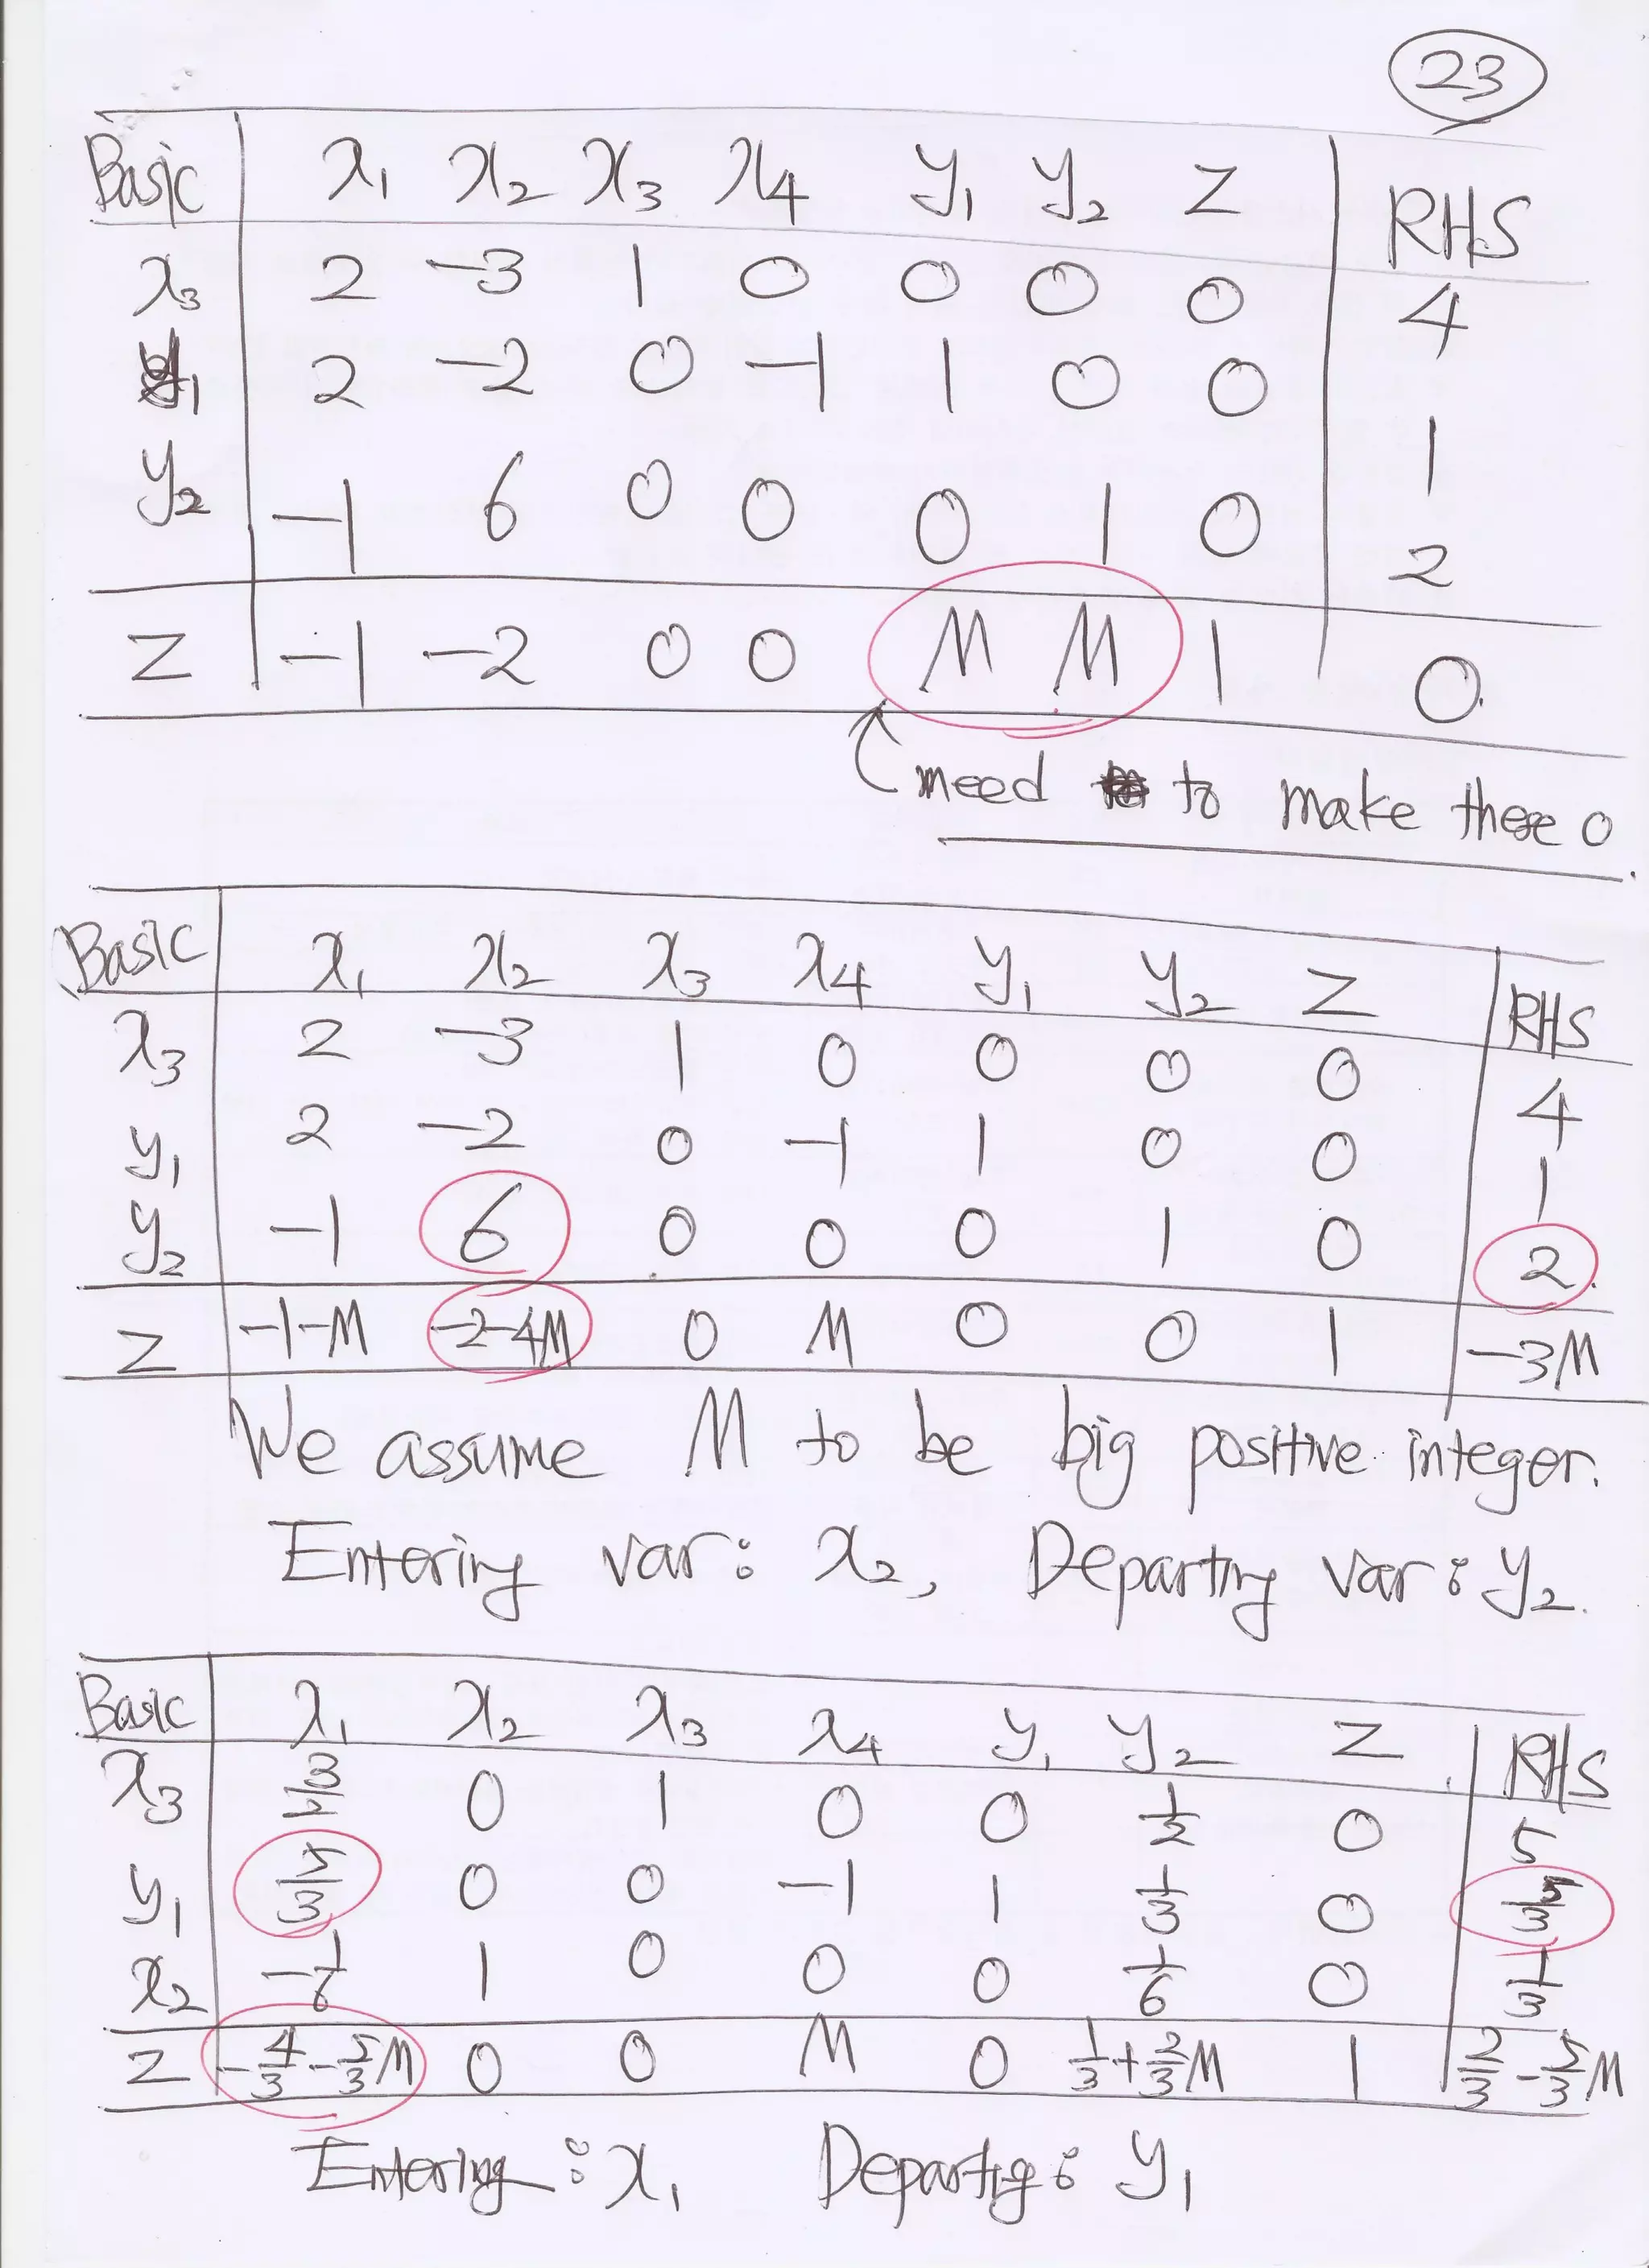 23
Basic x₁ x₂ x₃ x₄ y₁ y₂ z RHS
x₃ 2 -3 1 0 0 0 0 4
y₁ 2 -2 0 -1 1 0 0 1
y₂ -1 6 0 0 0 1 0 2
z -1 -2 0 0 M M 1 0.
need to make these 0.
Basic x₁ x₂ x₃ x₄ y₁ y₂ z RHS
x₃ 2 -3 1 0 0 0 0 4
y₁ 2 -2 0 -1 1 0 0 1
y₂ -1 6 0 0 0 1 0 2.
z -1-M -2-4M 0 M 0 0 1 -3M
We assume M to be big positive integer.
Entering var: x₂, Departing var: y₂.
Basic x₁ x₂ x₃ x₄ y₁ y₂ z RHS
x₃ 3/2 0 1 0 0 1/2 0 5
y₁ 5/3 0 0 -1 1 1/3 0 5/3
x₂ -1/6 1 0 0 0 1/6 0 1/3
z -4/3-5/3M 0 0 M 0 1/3+2/3M 1 2/3-5/3M
Entering: x₁ Departig: y₁